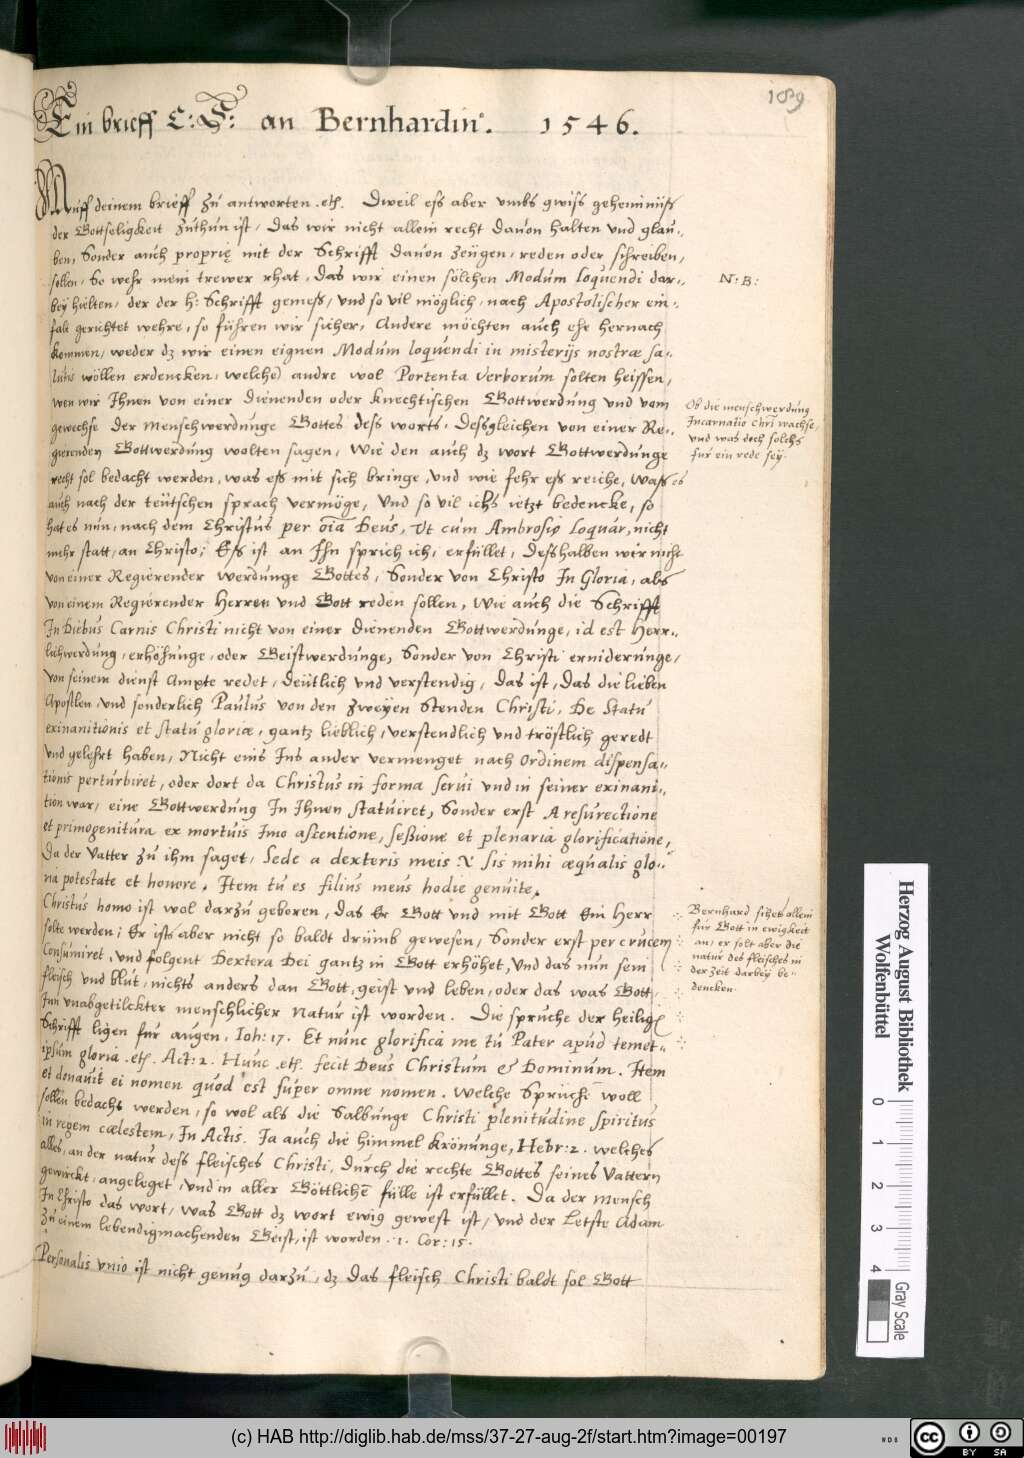 189
Ein brieff C: S: an Bernhardin⁹. 1546.
Auff deinem brieff zů antworten .etc. Dweil ess aber umbs gwiss geheimnüss
der Gottseligkeit zuthun ist, das wir nicht allein recht dauon halten und glau-
ben, Sonder auch proprię mit der Schrifft dauon zeugen, reden oder schreiben,
sollen, So wehr mein trewer rhat, das wir einen sölchen Modum loquendi dar-
bey hielten, der der h: Schrifft gemess, und so vil möglich, nach Apostolischer ein-
falt gerichtet wehre, so führen wir sicher, Andere möchten auch ehe hernach
kommen, weder dz wir einen eignen Modum loquendi in misterijs nostræ sa-
lutis wöllen erdencken, welche andre wol Portenta verborum solten heissen,
wen wir Ihnen von einer dienenden oder knechtischen Gottwerdung und vom
gewechse der menschwerdunge Gottes dess worts, dessgleichen von einer Re-
gierenden Gottwerdung wolten sagen, Wie den auch dz wort Gottwerdunge
recht sol bedacht werden, was ess mit sich bringe, und wie fehr ess reiche, wass es
auch nach der teütschen sprach vermöge, Und so vil ichs ietzt bedencke, so
hat es nun, nach dem Christus per oīa Deus, Ut cum Ambrosio loquar, nicht
mehr statt, an Christo; Ess ist an Ihn sprich ich, erfüllet, desshalben wir nicht
von einer Regierender werdunge Gottes, Sonder von Christo In Gloria, als
von einem Regierender Herren und Gott reden sollen, Wie auch die Schrifft
In Diebus Carnis Christi nicht von einer dienenden Gottwerdunge, id est Herr-
lichwerdung, erhöhunge, oder Geistwerdunge, Sonder von Christi erniderunge,
von seinem dienst Ampte redet, deütlich und verstendig, das ist, das die lieben
Apostlen, und sonderlich Paulus von den zweyen Stenden Christi, De Statu
exinanitionis et statu gloriæ, gantz lieblich, verstendlich und tröstlich geredt
und gelehrt haben, Nicht eins Ins ander vermenget nach Ordinem dispensa-
tionis perturbiret, oder dort da Christus in forma serui und in seiner exinani-
tion war, eine Gottwerdung In Ihnen statuiret, Sonder erst A resurectione
et primogenitura ex mortuis Imo ascentione, seßione et plenaria glorificatione,
Da der Vatter zů ihm saget, Sede a dexteris meis .i. sis mihi æqualis glo-
ria potestate et honore. Item tu es filius meus hodie genuite.
Christus homo ist wol darzů geboren, das Er Gott und mit Gott Ein Herr
solte werden; Er ists aber nicht so baldt drumb gewesen, Sonder erst per crucem
Consumiret, und folgent Dextera Dei gantz in Gott erhöhet, Und das nun sein
fleisch und blut, nichts anders dan Gott, geist und leben, oder das was Gott,
Inn unabgetilckter menschlicher Natur ist worden. Die sprüche der heilig
Schrifft ligen für augen, Ioh: 17. Et nunc glorifica me tu Pater apud temet-
ipsum gloria .etc. Act: 2. Hunc .etc. fecit Deus Christum & Dominum. Item
et donauit ei nomen quod est super omne nomen. Welche Sprüche woll
sollen bedacht werden, so wol als die Salbunge Christi plenitudine spiritus
in regem cælestem, In Actis. Ja auch die himmel krönunge, Hebr: 2. welches
alles, an der natur dess fleisches Christi, durch die rechte Gottes seines Vattern
gewirckt, angeleget, und in aller Göttlichē fülle ist erfüllet. Da der mensch
In Christo das wort, was Gott dz wort ewig gewest ist, und der Letste Adam
Zů einem lebendigmachenden Geist, ist worden. 1. Cor: 15.
Personalis vnio ist nicht genug darzů, dz das fleisch Christi baldt sol Gott
N: B:
Ob die menschwerdung
Incarnatio Chri wachse,
und was doch solchs
für ein rede sey.
Bernhard sihet allein
für Gott in ewigkeit
an, er solt aber die
natur des fleisches in
der zeit darbey be-
dencken.
Herzog August Bibliothek
Wolfenbüttel
0 1 2 3 4
Gray Scale
(c) HAB http://diglib.hab.de/mss/37-27-aug-2f/start.htm?image=00197
WDB
cc BY SA